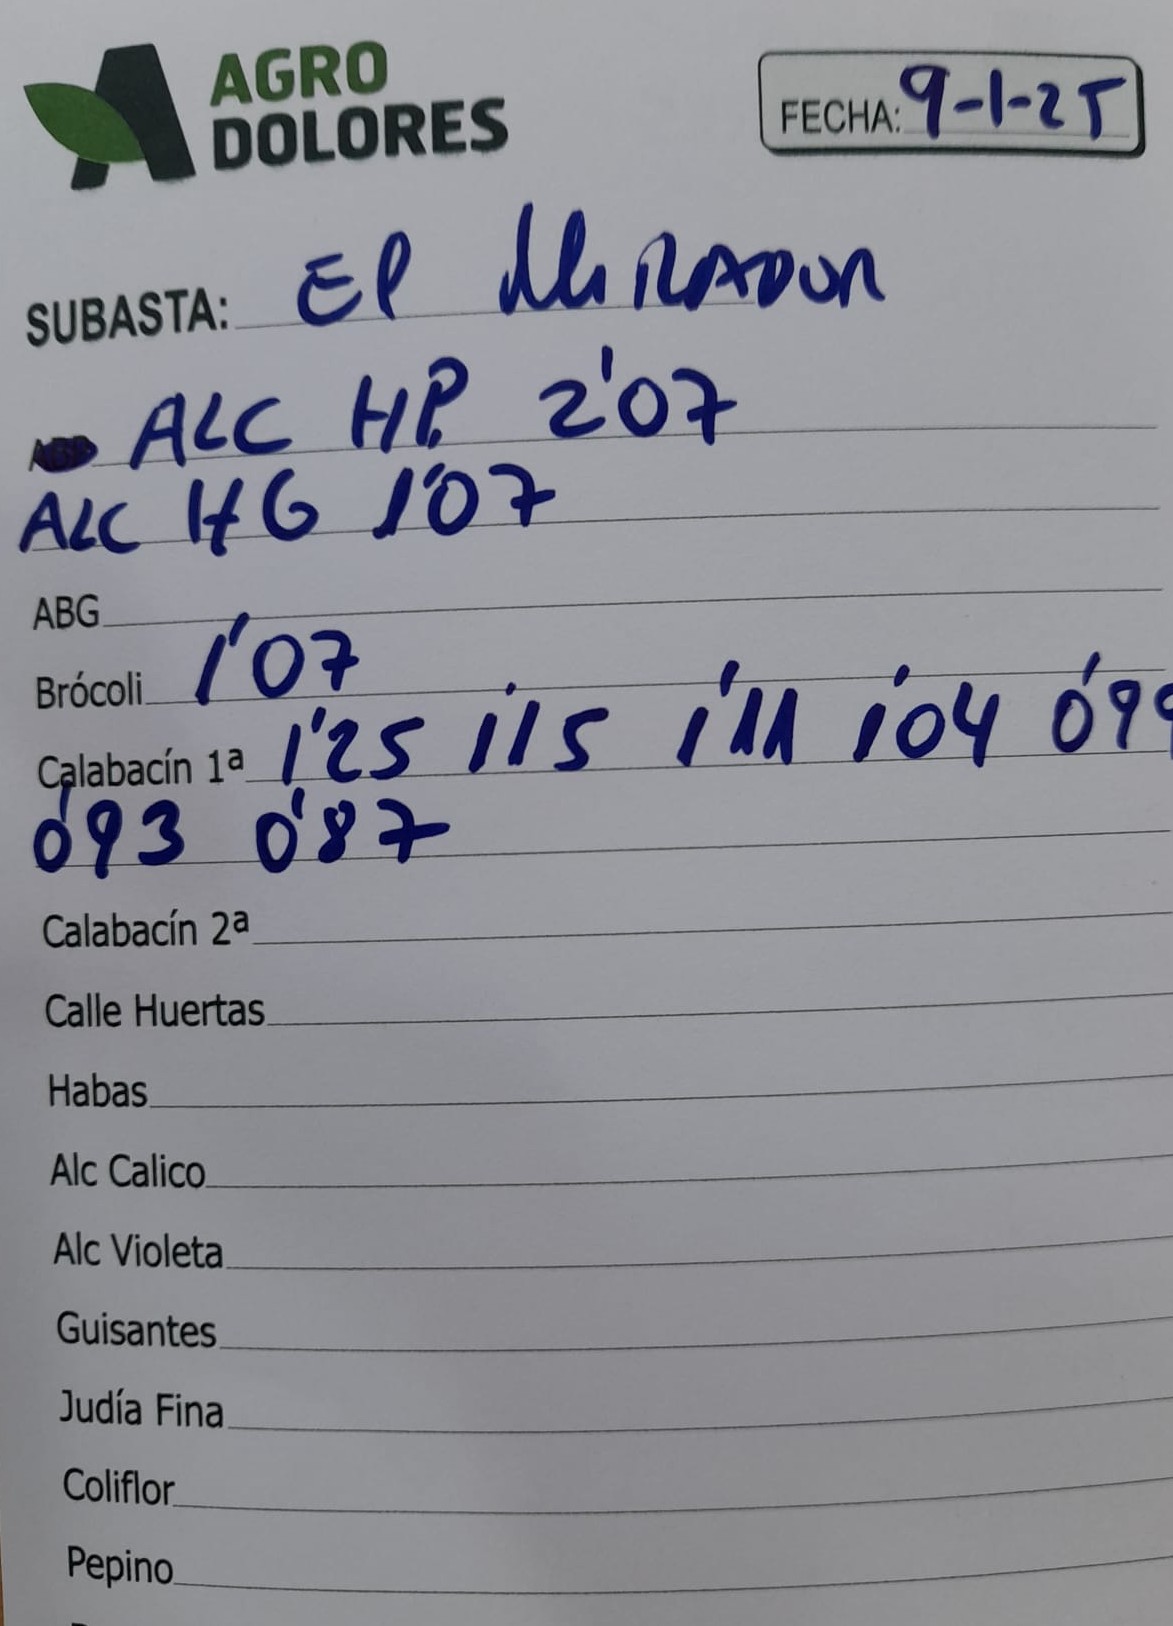 AGRO
DOLORES
FECHA: 9-1-25
SUBASTA: EP MIRADOR
ALC HP. 2'07
ALC HG 1'07
ABG
Brócoli 1'07
Calabacín 1ª 1'25 1'15 1'11 1'04 0'99
0'93 0'87
Calabacín 2ª
Calle Huertas
Habas
Alc Calico
Alc Violeta
Guisantes
Judía Fina
Coliflor
Pepino